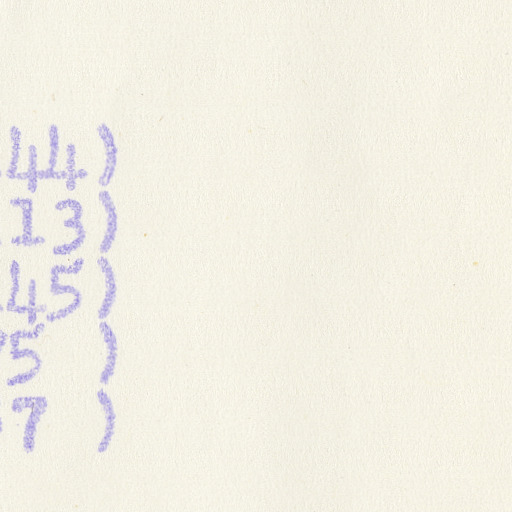 44)
13)
45)
5 )
7 )